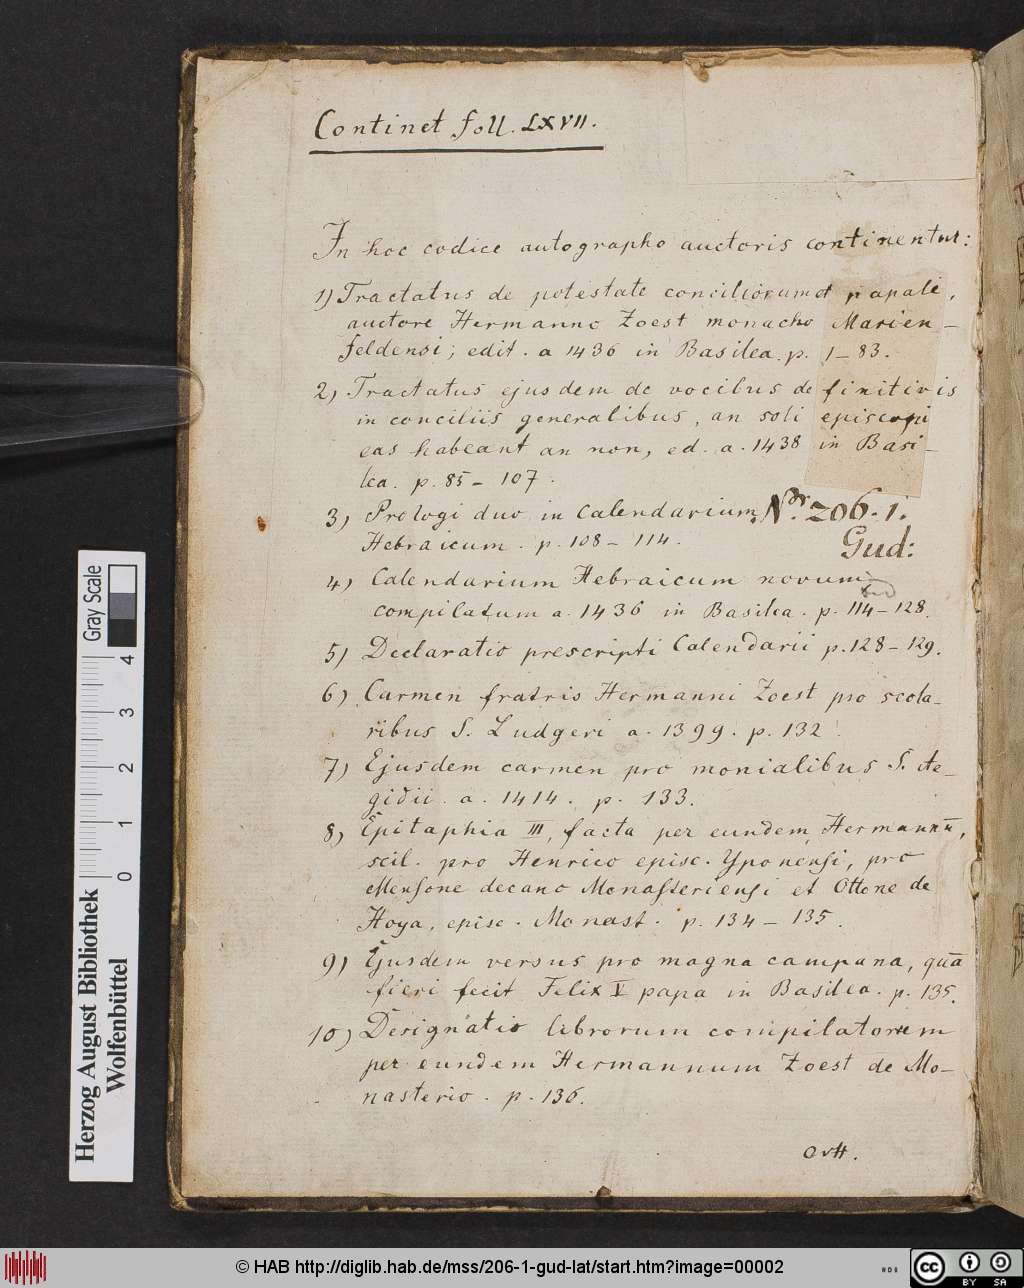 Continet foll. LXVII.
In hoc codice autographo auctoris continentur:
1) Tractatus de potestate conciliorum et papali,
auctore Hermanno Zoest monacho Marien-
feldensi; edit. a 1436 in Basilea. p. 1–83.
2) Tractatus ejusdem de vocibus definitivis
in conciliis generalibus, an soli episcopi
eas habeant an non, ed. a. 1438 in Basi-
lea. p. 85–107.
3) Prologi duo in Calendarium
Hebraicum. p. 108–114.
Nr. 206.1.
Gud:
4) Calendarium Hebraicum novum
compilatum a. 1436 in Basilea. p. 114–128.
5) Declaratio prescripti Calendarii p. 128–129.
6) Carmen fratris Hermanni Zoest pro scola-
ribus S. Ludgeri a. 1399. p. 132
7) Ejusdem carmen pro monialibus S. Ae-
gidii. a. 1414. p. 133.
8) Epitaphia III, facta per eundem Hermannū,
scil. pro Henrico episc. Yponensi, pro
Mensone decano Monasteriensi et Ottone de
Hoya, episc. Monast. p. 134–135.
9) Ejusdem versus pro magna campana, quā
fieri fecit Felix V papa in Basilea. p. 135.
10) Designatio librorum compilatorum
per eundem Hermannum Zoest de Mo-
nasterio. p. 136.
Herzog August Bibliothek
Wolfenbüttel
Gray Scale
0 1 2 3 4
© HAB http://diglib.hab.de/mss/206-1-gud-lat/start.htm?image=00002
WDB
cc BY SA